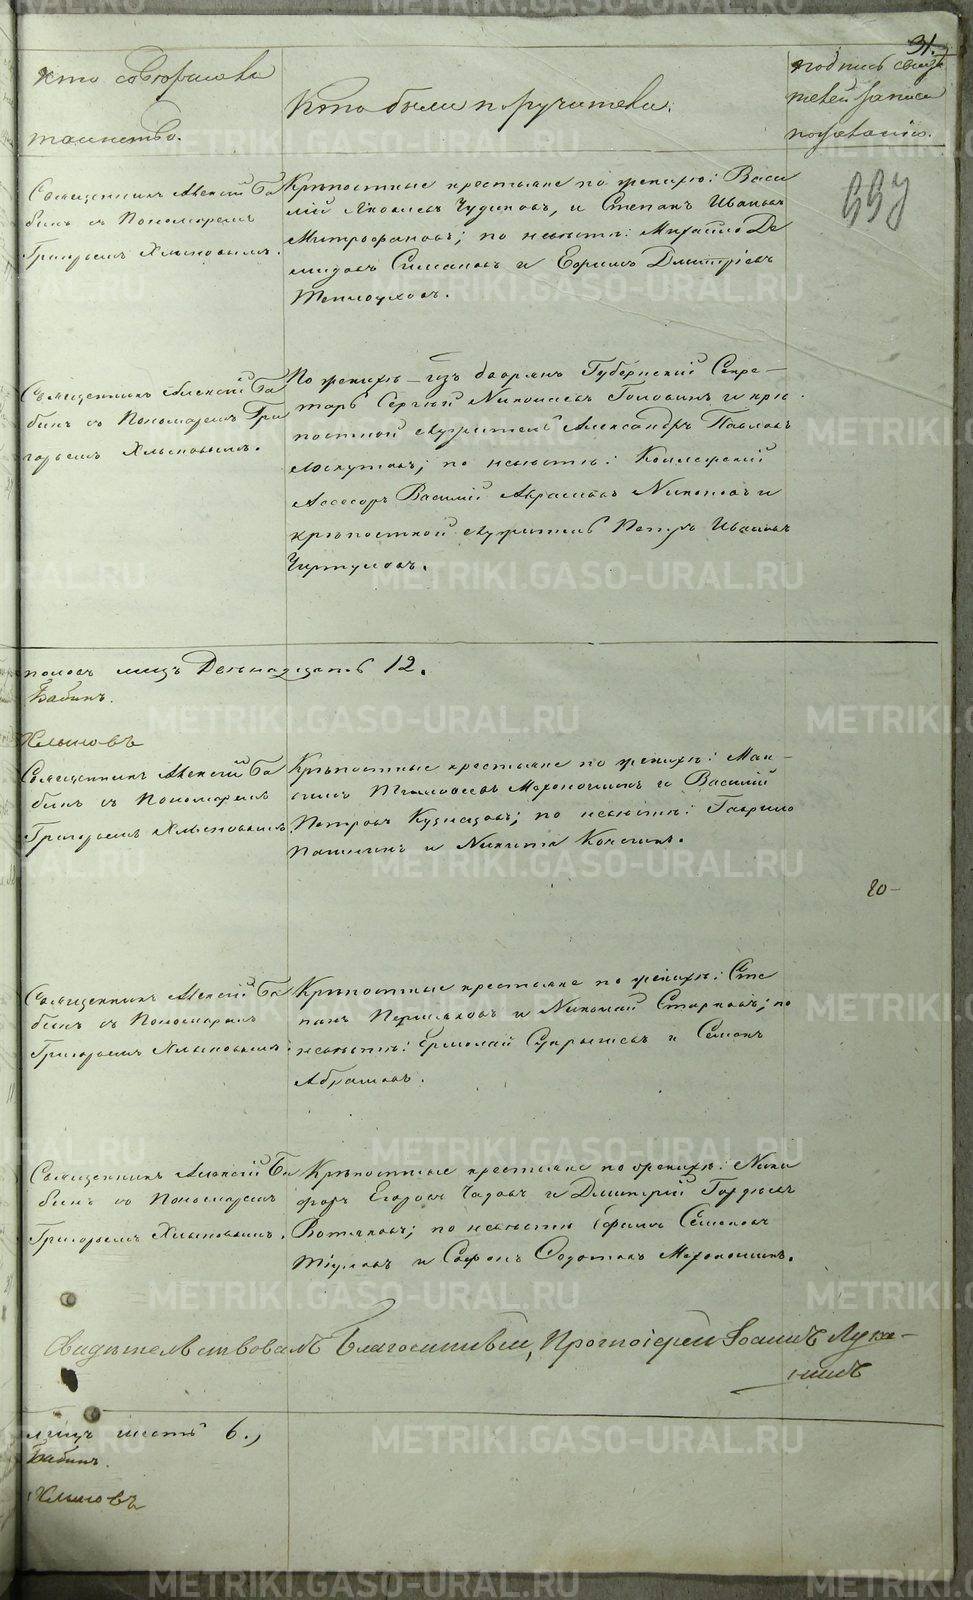 31.
Кто совершалъ
таинство.
Кто были поручители.
подпись свидѣ
телей записи
по желанію.
Священникъ Алексій Ба
бинъ съ Пономаремъ
Григорьемъ Хлыновымъ.
Крѣпостные крестьяне по женихѣ: Васи
лій Яковлевъ Чудиновъ, и Степанъ Ивановъ
Митрофановъ; по невѣстѣ: Михайло Де
мидовъ Симановъ и Ефимъ Дмитріевъ
Теплоуховъ.
Священникъ Алексій Ба
бинъ съ Пономаремъ Гри
горьемъ Хлыновымъ.
По женихѣ – изъ дворянъ Губернскій Секре–
тарь Сергѣй Николаевъ Головинъ и крѣ
постной служитель Александръ Павловъ
Лоскутовъ; по невѣстѣ: Коллежскій
Ассесоръ Василій Абрамовъ и
крѣпостной служитель Петръ Ивановъ
полов лицъ Двенадцать 12.
Бабинъ.
Хлыновъ
Священникъ Алексій Ба
бинъ съ Пономаремъ
Григорьемъ Хлыновымъ.
Крѣпостные крестьяне по женихѣ: Мак–
симъ Тимофеевъ Мехоношинъ и Василій
Петровъ Кузнецовъ; по невѣстѣ: Гаврило
Пашнинъ и Никита Кончинъ.
20–
Священникъ Алексій Ба
бинъ съ Пономаремъ
Григорьемъ Хлыновымъ.
Крѣпостные крестьяне по женихѣ: Сте
панъ Пермяковъ и Николай Старковъ; по
невѣстѣ: Ермолай и Семенъ
Абрамовъ.
Священникъ Алексій Ба
бинъ съ Пономаремъ
Григорьемъ Хлыновымъ.
Крѣпостные крестьяне по женихѣ: Ники
форъ Егоровъ Чадовъ и Дмитрій Гордѣевъ
Вотяковъ; по невѣстѣ Ефимъ Семеновъ
и Софонъ Федотовъ Мехоношинъ.
Свидѣтельствовалъ Благочинный, Протоіерей Іоаннъ Лука–
нинъ
лицъ шесть 6.,
Бабинъ.
Хлыновъ
METRIKI.GASO-URAL.RU